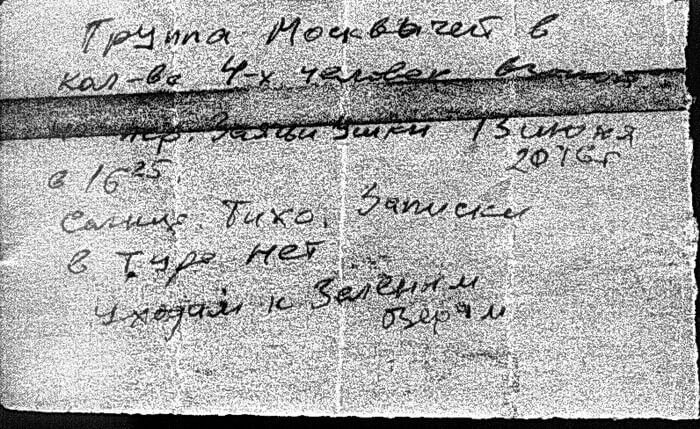 Группа Москвычей в
кол-ве 4-х человек
пер. Заячьи Ушки 13 июня
2016г
в 16 25.
Солнце. Тихо. Записки
в туре нет
Уходим к Зелёным
озёрам